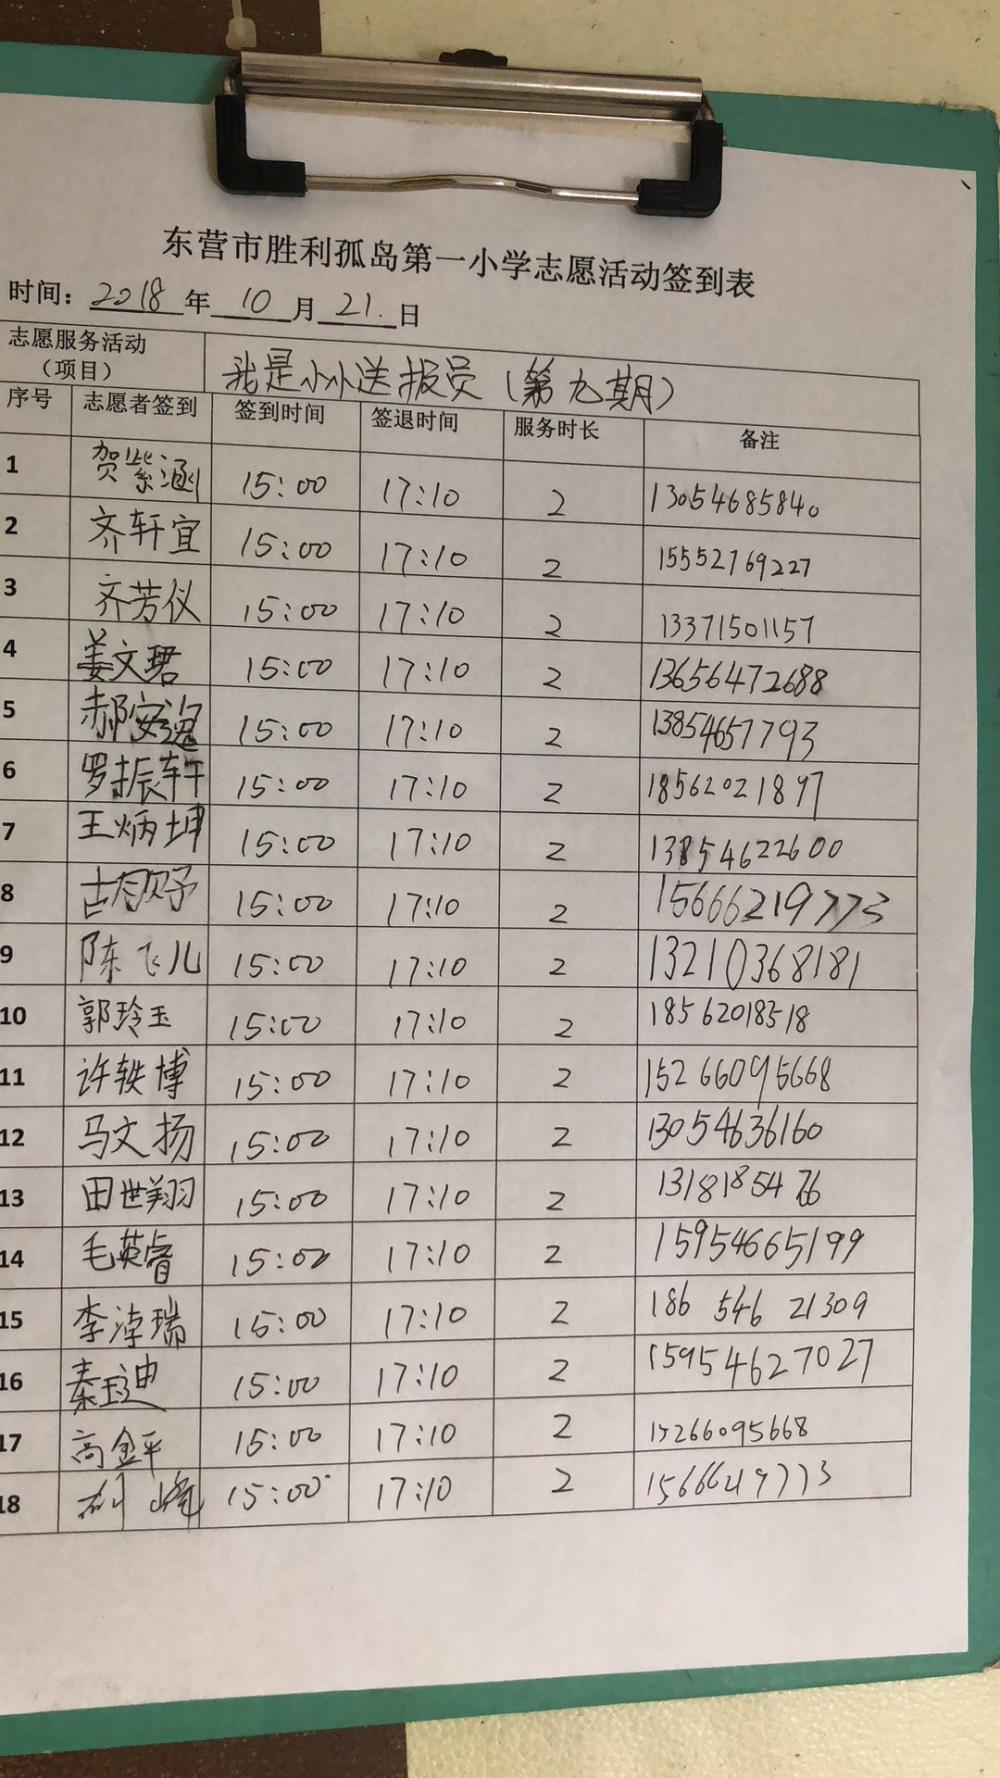 东营市胜利孤岛第一小学志愿活动签到表
时间：2018年10月21.日
志愿服务活动（项目） 我是小小送报员（第九期）
序号 志愿者签到 签到时间 签退时间 服务时长 备注
1 贺紫涵 15:00 17:10 2 13054685840
2 齐轩宜 15:00 17:10 2 15552769227
3 齐芳仪 15:00 17:10 2 13371501157
4 姜文珺 15:00 17:10 2 13656472688
5 郝安逸 15:00 17:10 2 13854657793
6 罗振轩 15:00 17:10 2 18562021897
7 王炳坤 15:00 17:10 2 13854622600
8 15:00 17:10 2 15666219773
9 陈飞儿 15:00 17:10 2 13210368181
10 郭玲玉 15:00 17:10 2 18562018518
11 许轶博 15:00 17:10 2 15266095668
12 马文扬 15:00 17:10 2 13054636160
13 田世翔 15:00 17:10 2
14 毛英睿 15:00 17:10 2 15954665199
15 李淖瑞 15:00 17:10 2 186 546 21309
16 秦 15:00 17:10 2 15954627027
17 高金平 15:00 17:10 2 15266095668
18 15:00 17:10 2 15666219773